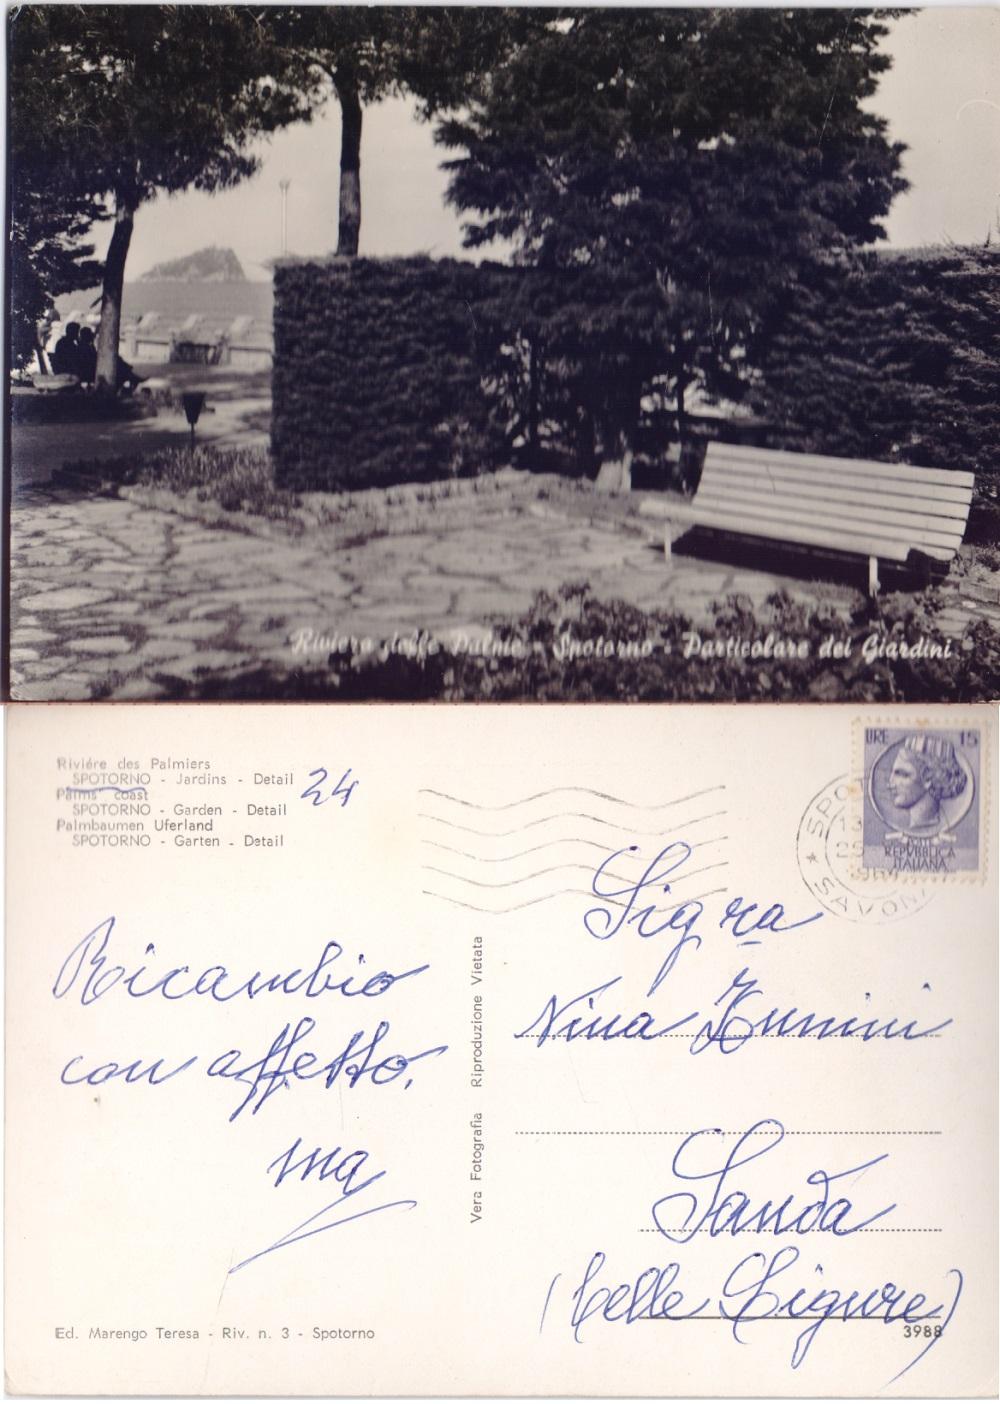 Riviera delle Palme - Spotorno - Particolare dei Giardini
Riviére des Palmiers
SPOTORNO - Jardins - Detail
Palms' coast
SPOTORNO - Garden - Detail
Palmbaumen Uferland
SPOTORNO - Garten - Detail
24
LIRE 15
REPVBBLICA
ITALIANA
SPOT
SAVONA
Ricambio
con affetto.
Ina
Vera Fotografia Riproduzione Vietata
Sigra
Nina Zunini
Sanda
(Celle Ligure)
Ed. Marengo Teresa - Riv. n. 3 - Spotorno
3988